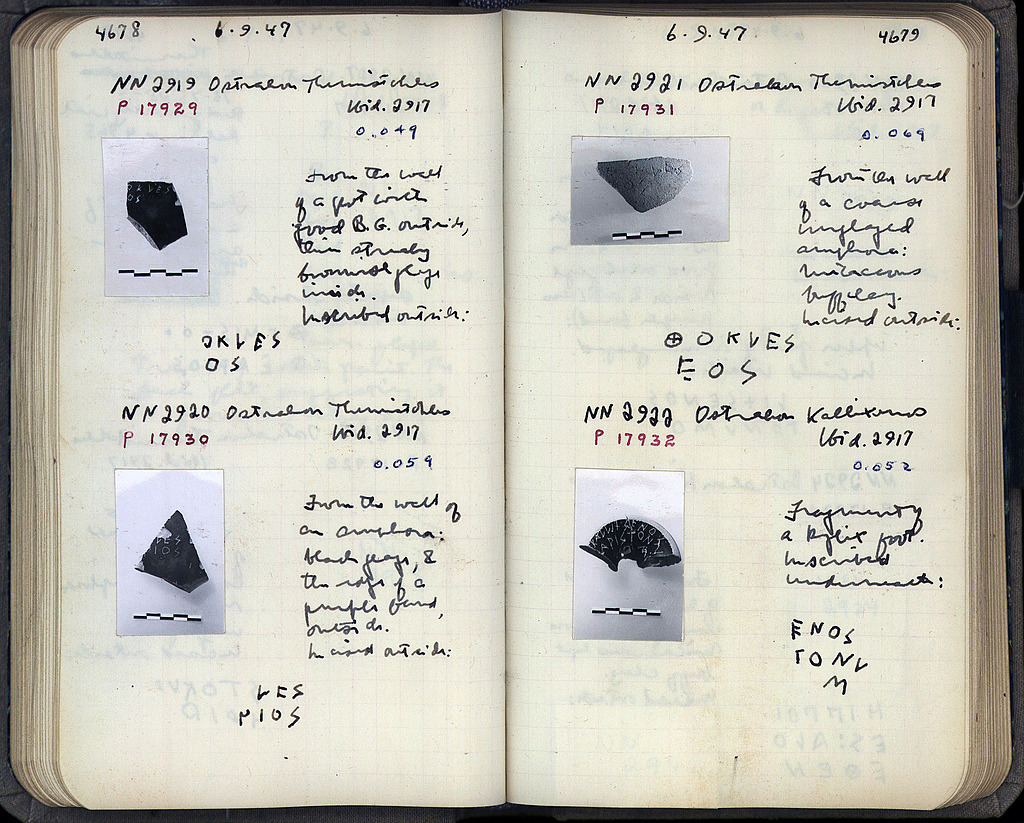 4678
6.9.47
NN 2919 Ostrakon Themistokles
P 17929
Ibid. 2917
0.049
From the wall
of a pot with
good B.G. outside,
thin streaky
brownish glaze
inside.
Inscribed outside:
OKLES
OS
NN 2920 Ostrakon Themistokles
P 17930
Ibid. 2917
0.059
From the wall of
an amphora:
black glaze, &
the edge of a
purple band,
outside.
Incised outside:
LES
PIOS
6.9.47
4679
NN 2921 Ostrakon Themistokles
P 17931
Ibid. 2917
0.069
From the wall
of a coarse
unglazed
amphora:
micaceous
buff clay.
Incised outside:
⊕OKLES
EOS
NN 2922 Ostrakon Kallixenos
P 17932
Ibid. 2917
0.052
Fragment of
a kylix foot.
Inscribed
underneath:
ENOS
TONV
M